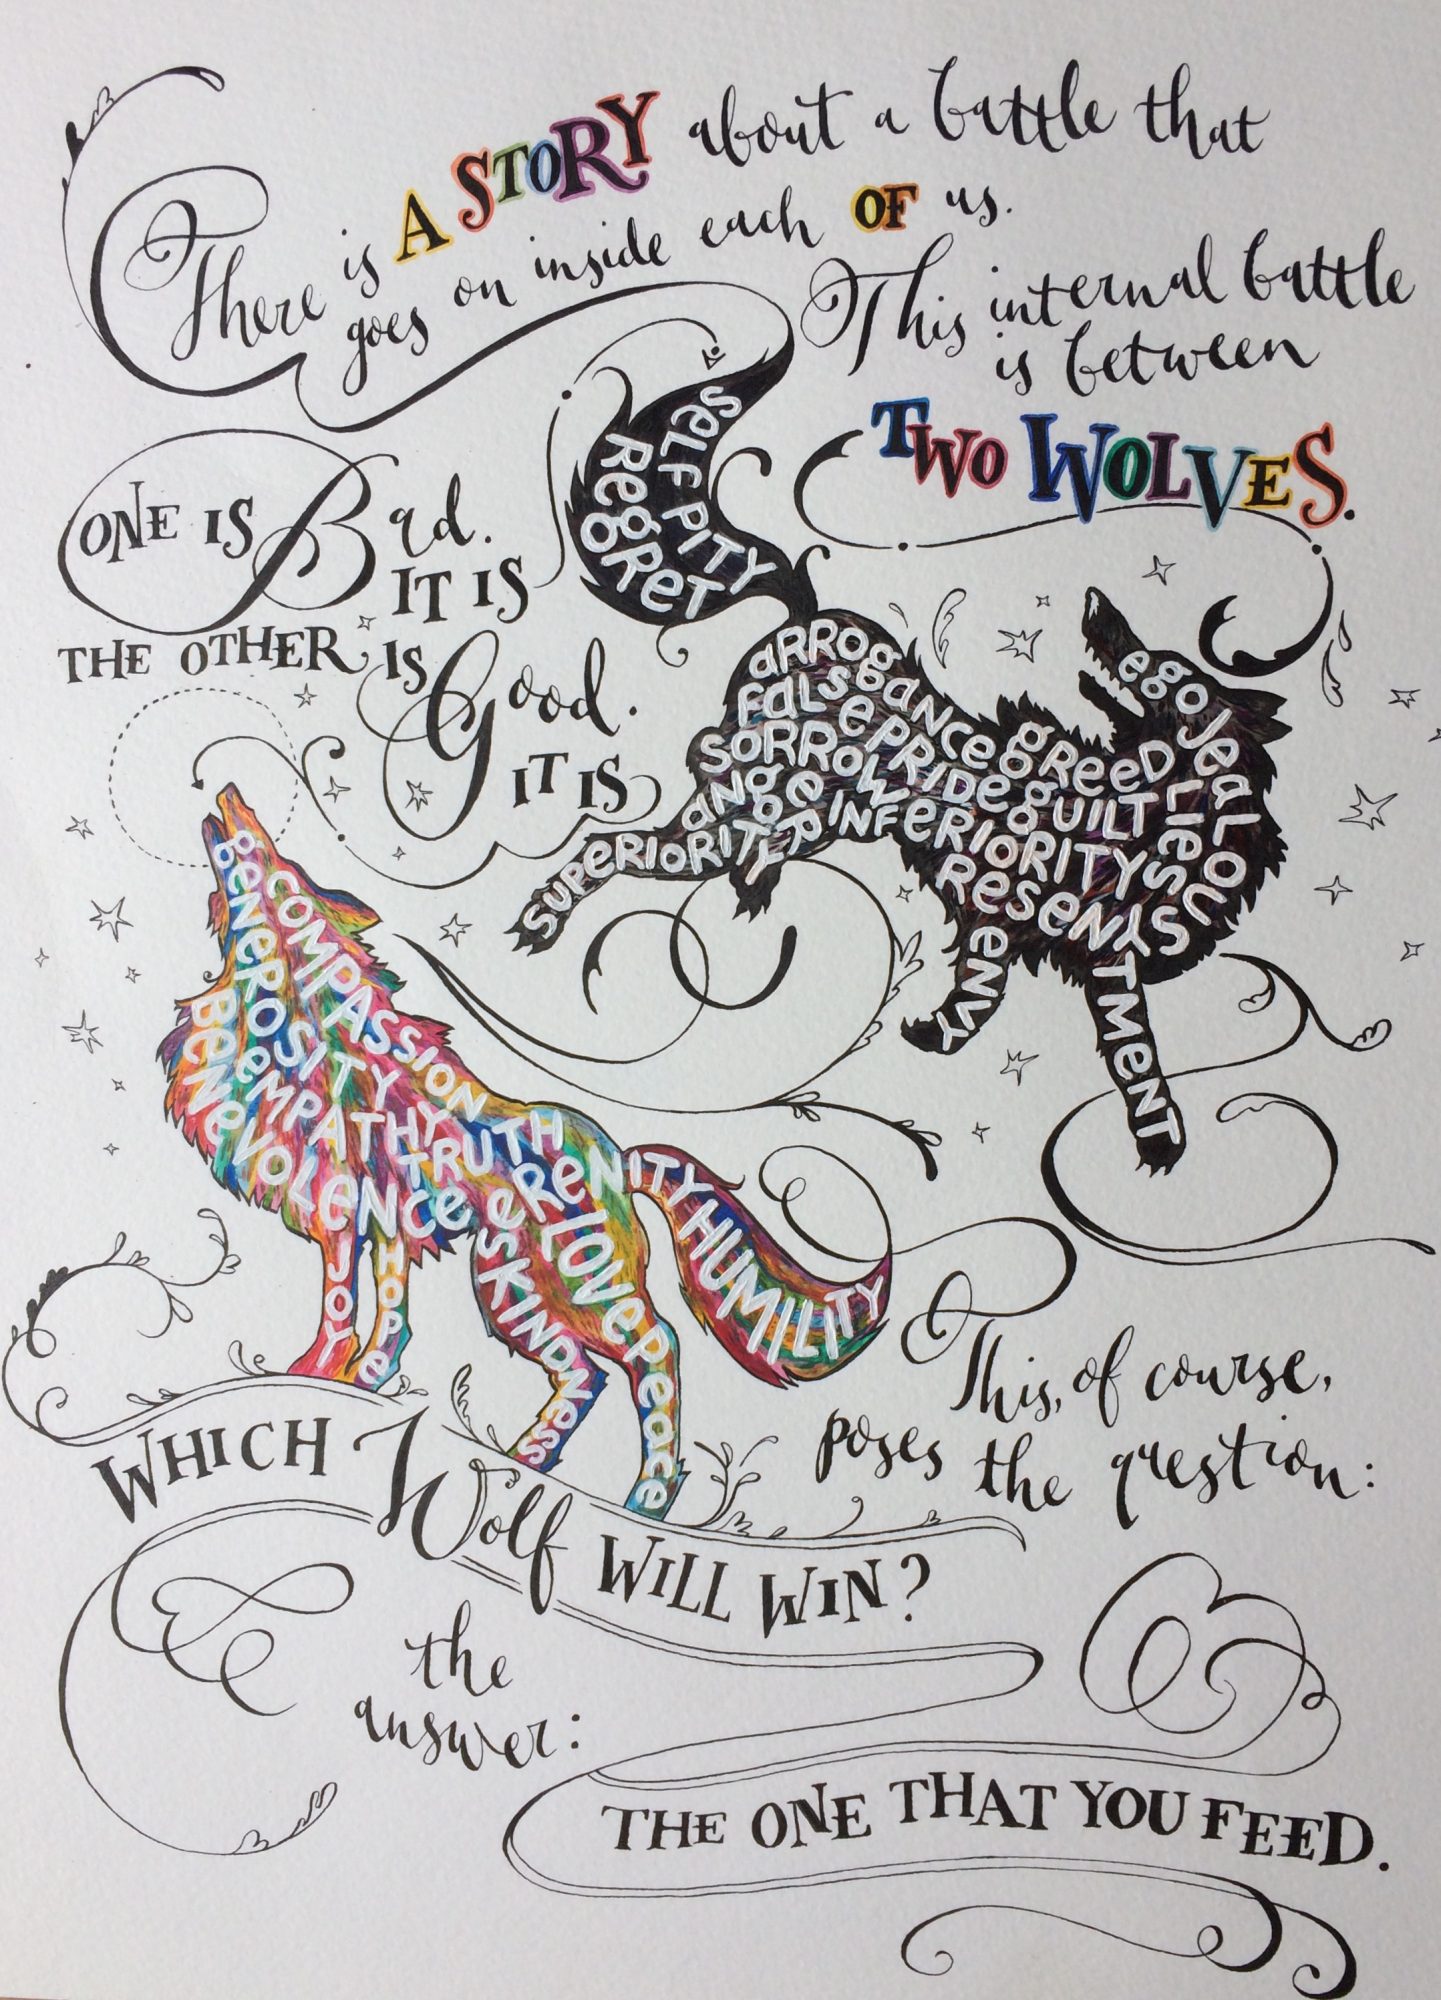 There is A STORY about a battle that
goes on inside each OF us.
This internal battle
is between
TWO WOLVES.
ONE IS Bad.
IT IS
SELF PITY
RegReT
aRROgaNCe
gReeD
ego
JeaLOUSY
FaLSePRIDe
gUILT
LIeS
SORROW
INFeRIORITY
aNgeR
ReSeNTMeNT
SUPeRIORITY
eNVY
THE OTHER IS Good.
IT IS
COMPASSION
GeNeROSITY
BeNeVOLeNCe
eMPATHY
TRUTH
SeReNITY
HUMILITY
JOY
HOPe
KINDNeSS
LOVe
Peace
This, of course,
poses the question:
WHICH Wolf WILL WIN?
the
answer:
THE ONE THAT YOU FEED.